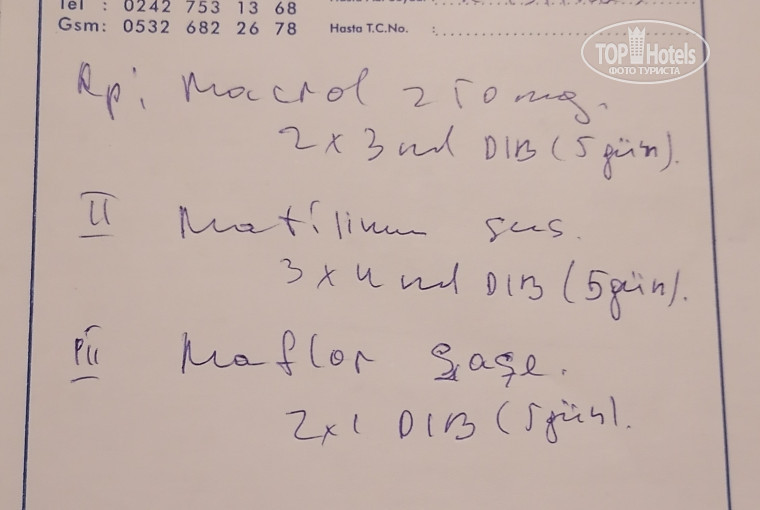 Tel : 0242 753 13 68
Gsm: 0532 682 26 78
Hasta T.C.No. :
TOP Hotels
ФОТО ТУРИСТА
Rp: Macrol 250 mg.
2 x 3 ml DIB (5 gün).
II Motilium sus.
3 x 4 ml DIB (5 gün).
III Maflor şaşe.
2x1 DIB (5 gün).